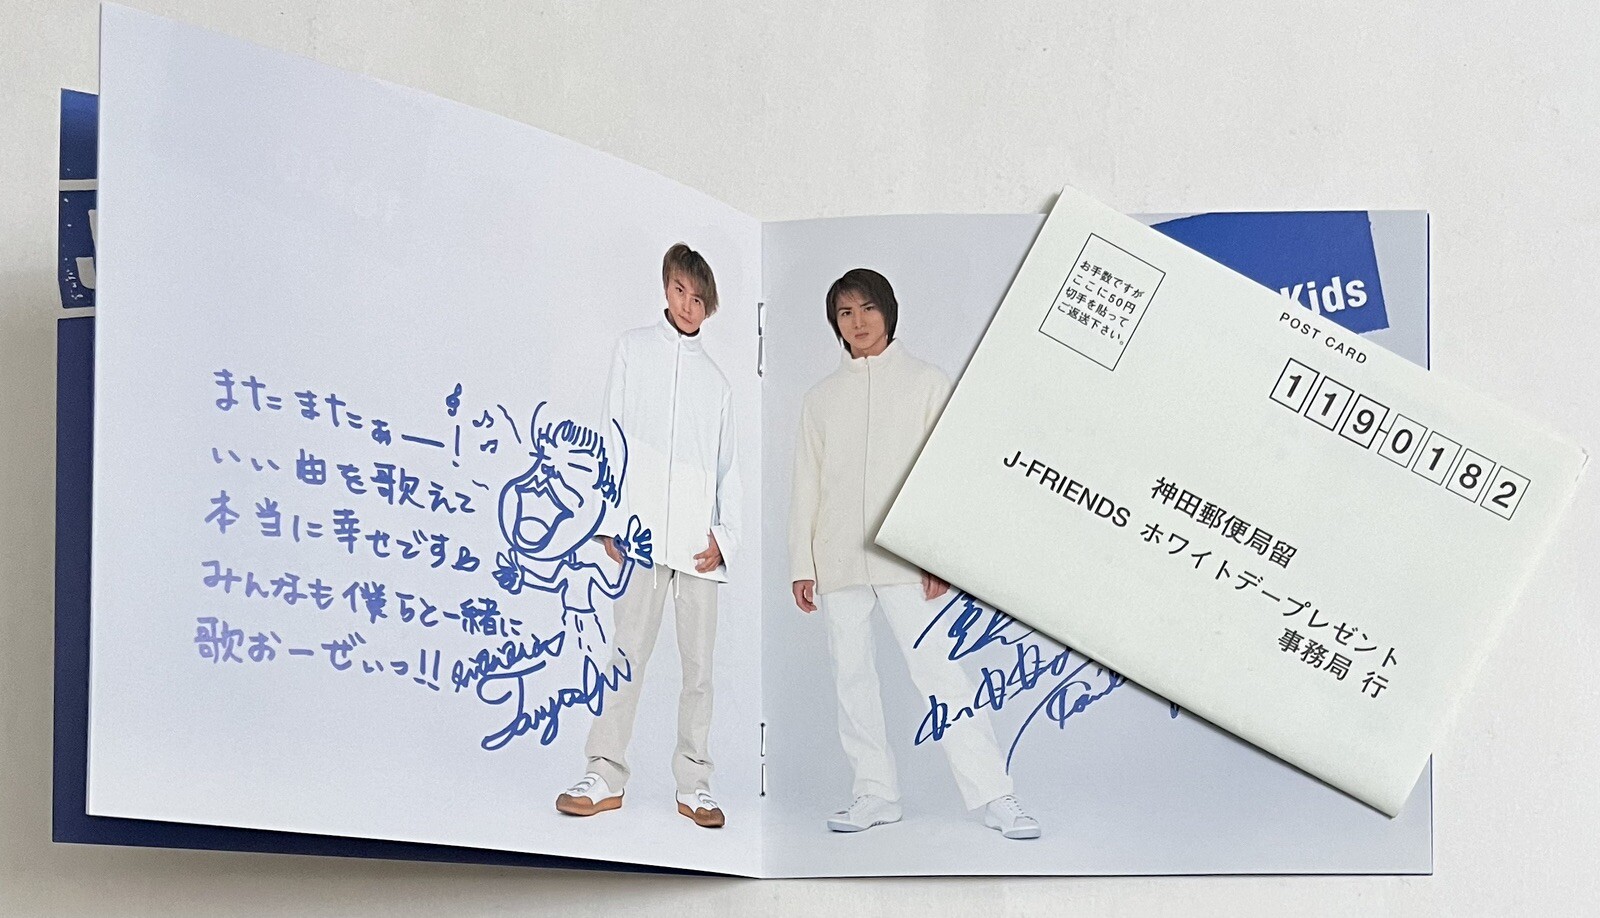 またまたぁー!
いい曲を歌えて
本当に幸せです
みんなも僕らと一緒に
歌おーぜぃっ!!
Kids
お手数ですが
ここに50円
切手を貼って
ご返送下さい。
POST CARD
119-0182
神田郵便局留
J-FRIENDS ホワイトデープレゼント
事務局 行